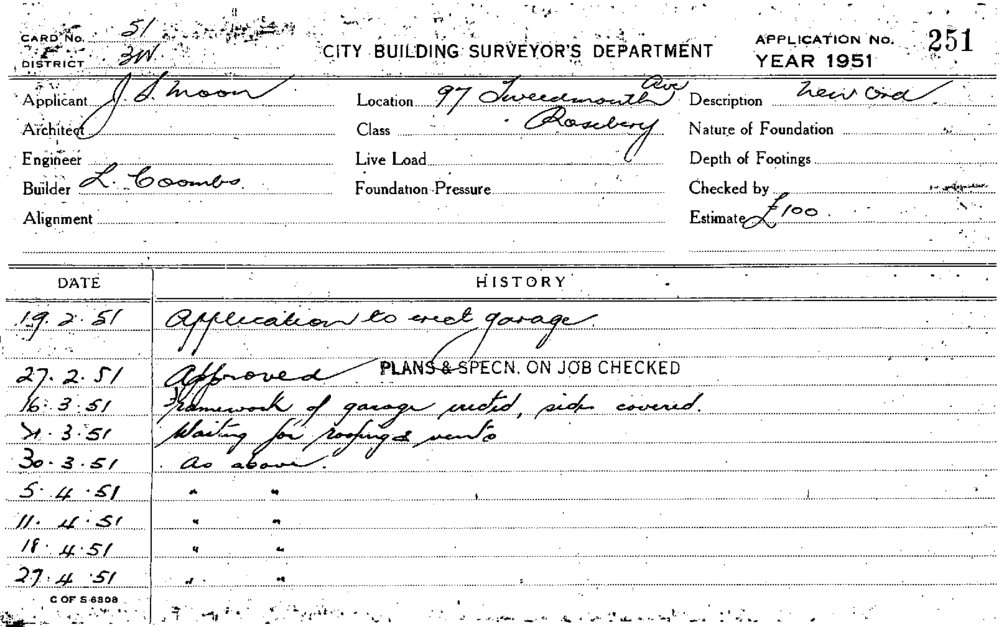 CARD No. 51
DISTRICT 3W.
CITY BUILDING SURVEYOR'S DEPARTMENT
APPLICATION No. 251
YEAR 1951
Applicant J S. Moon
Location 97 Tweedmouth Ave
Rosebery
Description New Ord
Architect
Class
Nature of Foundation
Engineer
Live Load
Depth of Footings
Builder L. Coombs.
Foundation Pressure
Checked by
Alignment
Estimate £100
DATE HISTORY
19. 2. 51 Application to erect garage.
27. 2. 51 Approved PLANS & SPECN. ON JOB CHECKED
16. 3. 51 Framework of garage erected, sides covered.
21. 3. 51 Waiting for roofing & vents
30. 3. 51 As above.
5. 4. 51 " "
11. 4. 51 " "
18. 4. 51 " "
27. 4. 51 " "
C OF S 6308